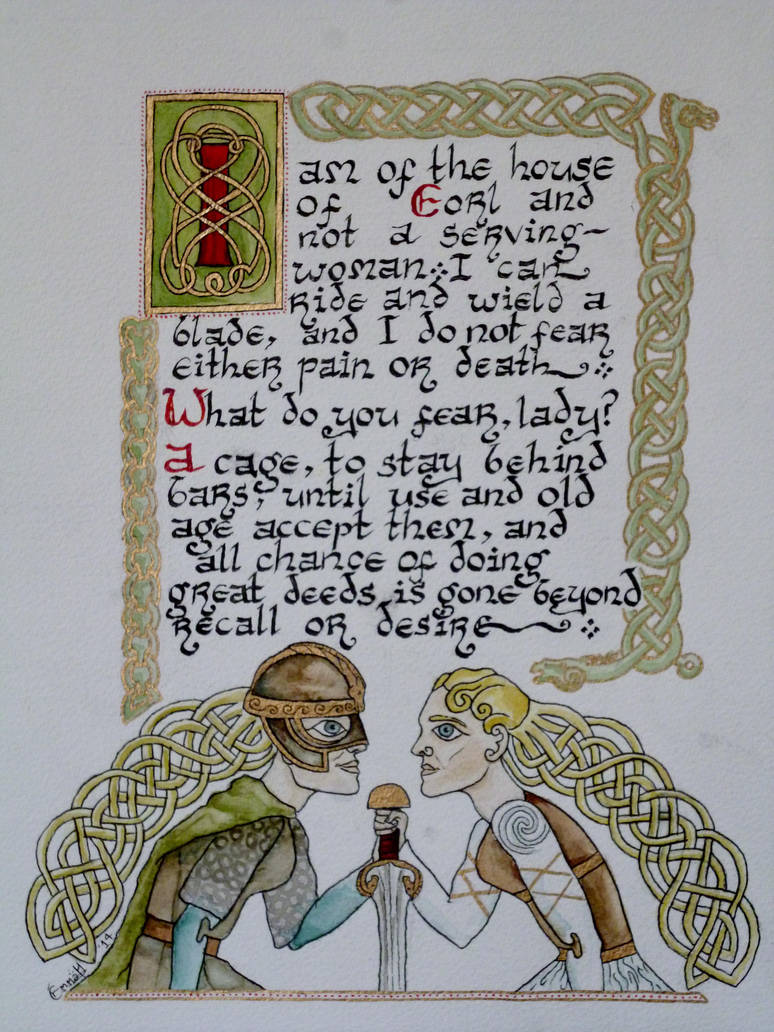 I am of the house
of Eorl and
not a serving-
woman⁘I can
ride and wield a
blade, and I do not fear
either pain or death⁘
What do you fear, lady?
A cage, to stay behind
bars, until use and old
age accept them, and
all chance of doing
great deeds is gone beyond
recall or desire⁘
'14